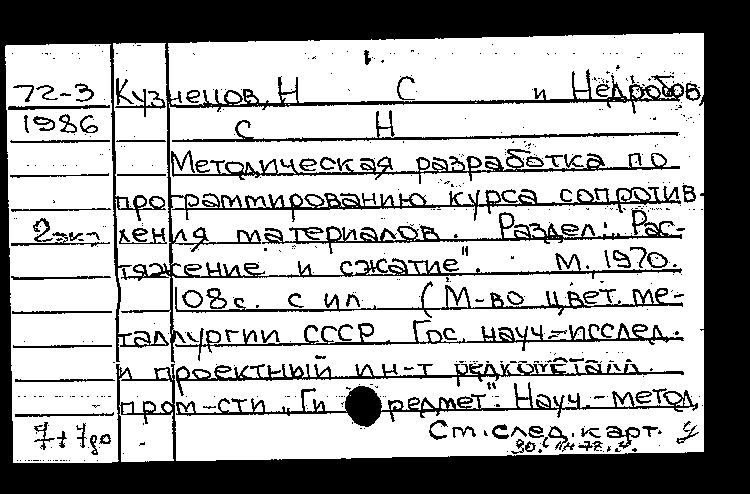 1.
72-3 Кузнецов, Н С и Недробов,
1986 С Н
Методическая разработка по
программированию курса сопротив-
2экз ления материалов. Раздел: „Рас-
тяжение и сжатие". М., 1970.
108 с. с ил. (М-во цвет. ме-
таллургии СССР. Гос. науч=исслед.
и проектный ин-т редкометалл.
пром-сти „Гиредмет". Науч.-метод.
Ст. след. карт.